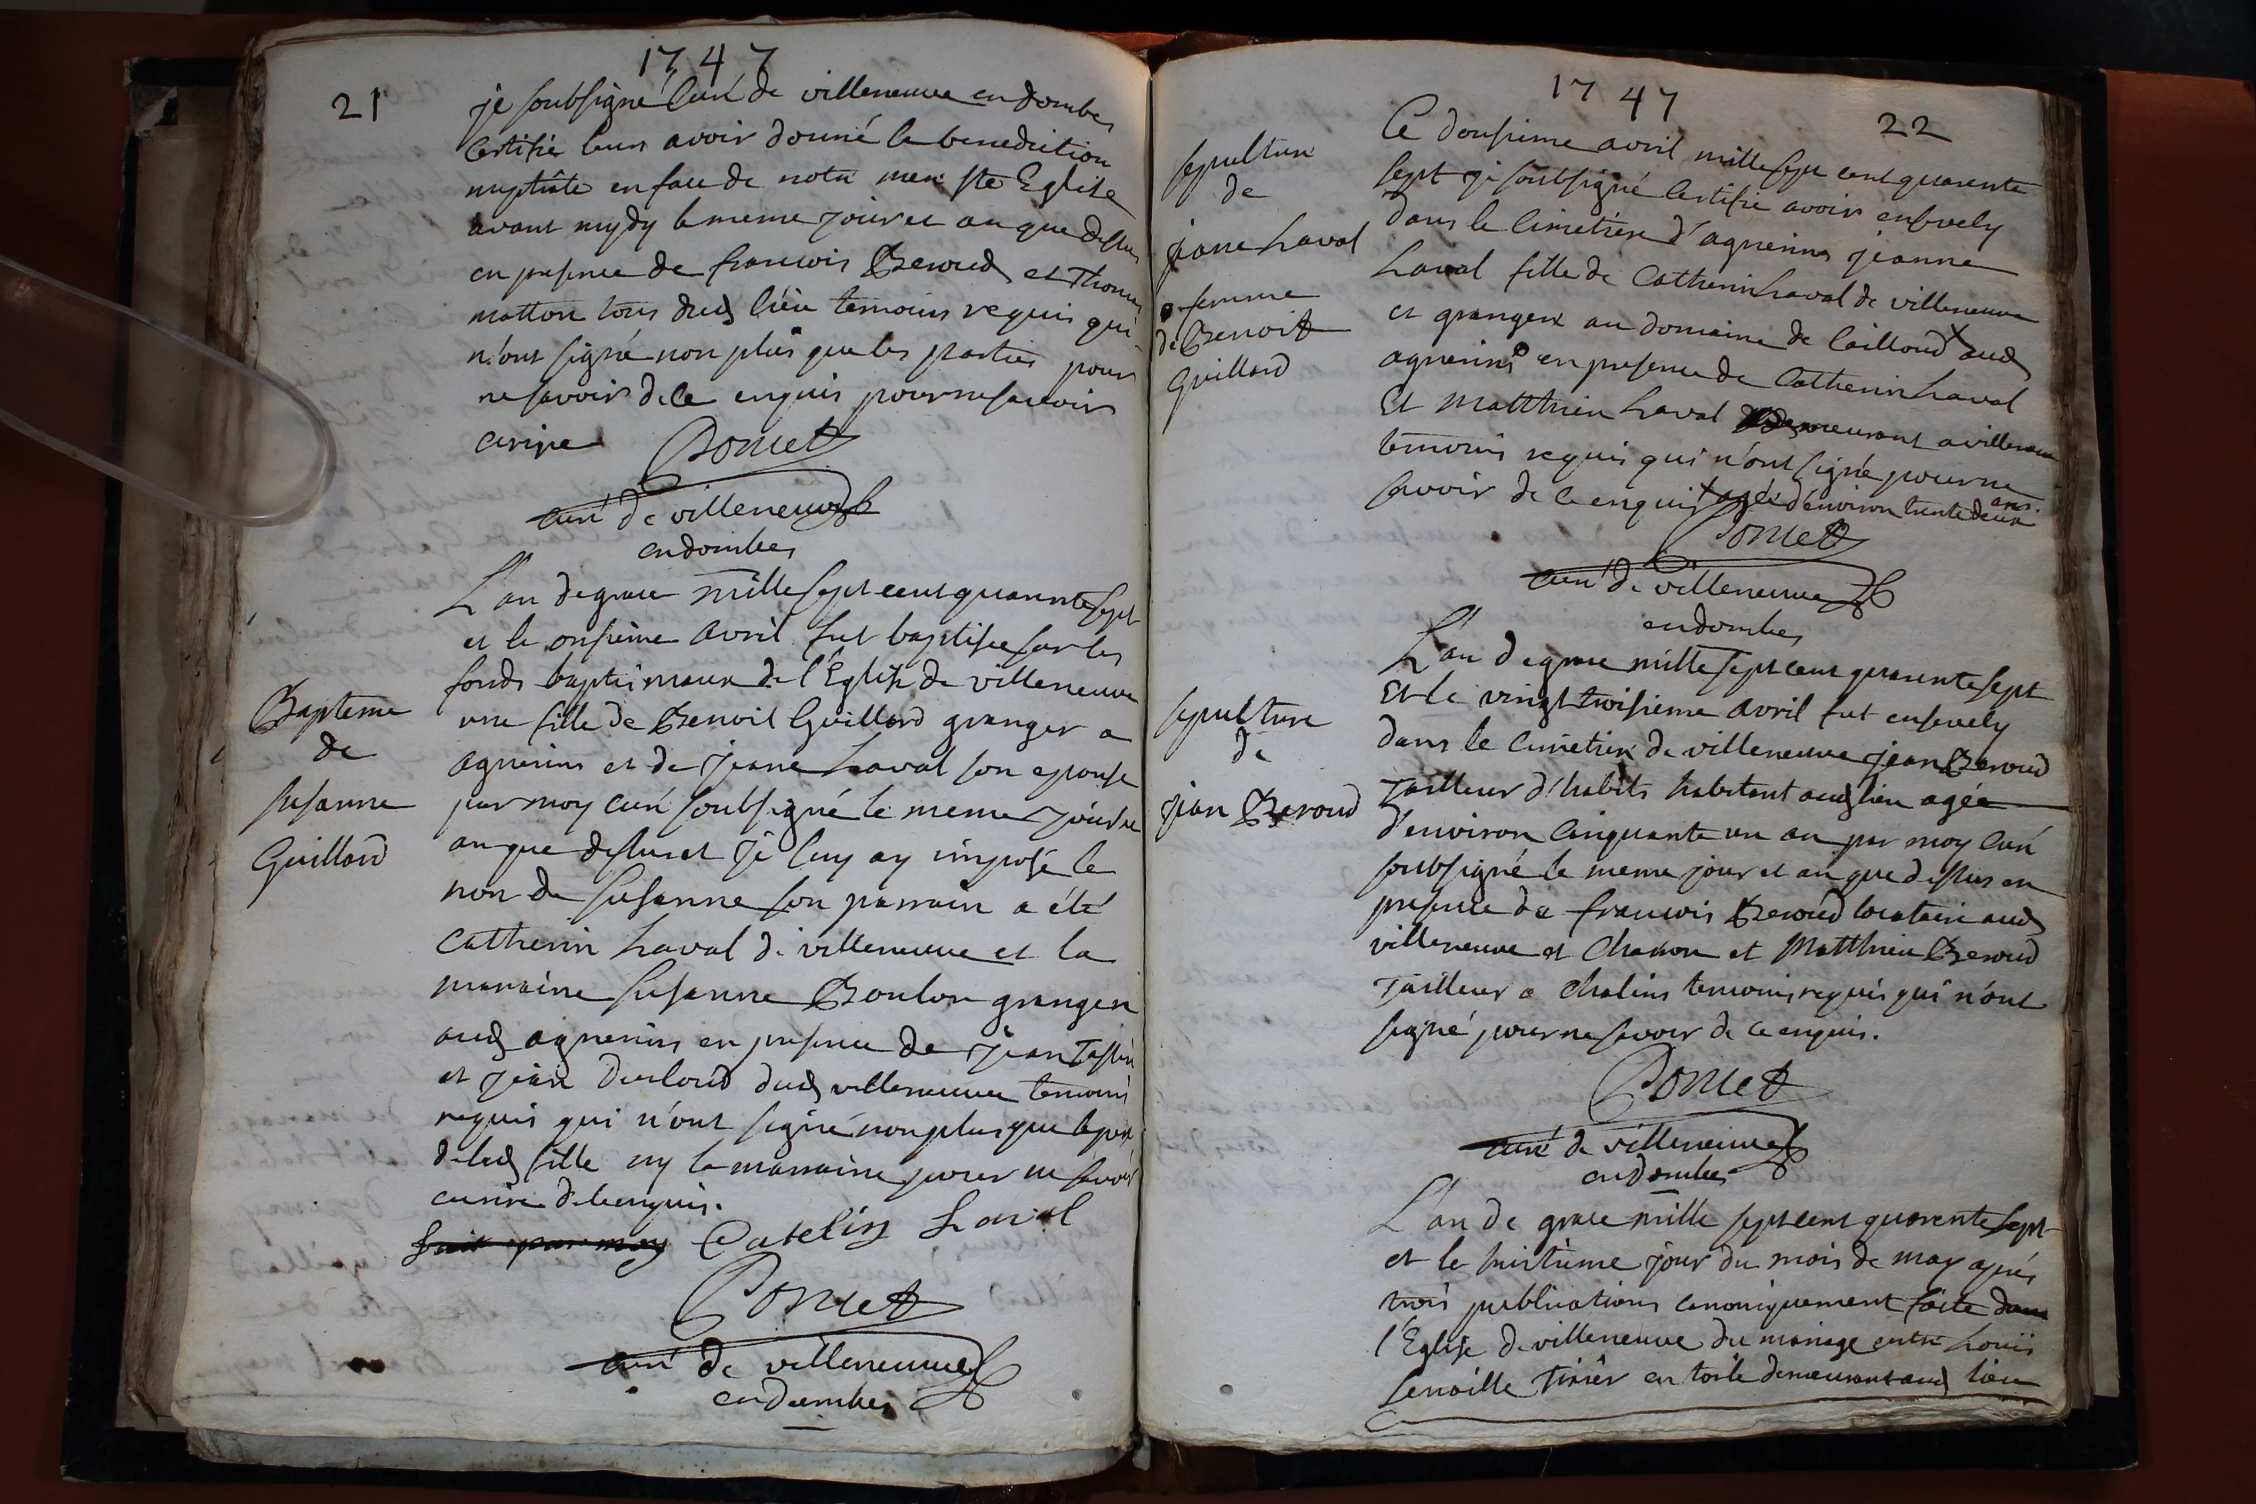 1747
21
je soubsigné Curé de villeneuve en dombes
Certifie leurs avoir donné la benediction
nuptiale en face de notre mere Ste Eglise
avant mydy le meme jour et an que dessus
en presence de francois Beroud et Thomas
matton tous dud lieu temoins requis qui
n'ont signé non plus que les parties pour
ne savoir de ce enquis pour ne savoir
ecrire Poncet
curé de villeneuve
en dombes
L'an de grace mille sept cent quarante sept
et le onsieme avril fut baptisée sur les
fonds baptismaux de l'Eglise de villeneuve
une fille de Benoit Guillard granger a
agnerins et de jeane Laval son epouse
par moy curé soubsigné le meme jour et
an que dessus et je luy ay imposé le
Bapteme
de
susanne
Guillard
non de susanne son parrain a été
Catherin Laval de villeneuve et la
marraine susanne Boulon grangere
aud agnerins en presence de jean
et jean dud villeneuve temoins
requis qui n'ont signé non plus que le pere
de lad fille ny la marraine pour ne savoir
ecrire de ce enquis.
fait par moy Catelin Laval
Poncet
curé de villeneuve
en dombes
1747
22
sepulture
de
jeane Laval
femme
de Benoit
Guillard
Ce dousieme avril mille sept cent quarente
sept je soubsigné Certifie avoir ensevely
dans le cimetiere d'agnerins jeanne
Laval fille de Catherin Laval de villeneuve
et grangere au domaine de Caillond aud
agnerins en presence de Catherin Laval
Et Matthieu Laval demeurant a villeneuve
temoins requis qui n'ont signé pour ne
savoir de ce enquis agée d'environ trente deux ans.
Poncet
curé de villeneuve
en dombes
sepulture
de
jean Beroud
L'an de grace mille sept cent quarente sept
Et le vingt troisieme avril fut ensevely
dans le cimetiere de villeneuve jean Beroud
Tailleur d'habits habitant aud lieu agée
d'environ cinquante un an par moy curé
soubsigné le meme jour et an que dessus en
presence de francois Beroud locataire aud
villeneuve et et Matthieu Beroud
Tailleur a Chaleins temoins requis qui n'ont
signé pour ne savoir de ce enquis.
Poncet
curé de villeneuve
en dombes
L'an de grace mille sept cent quarente sept
et le huitieme jour du mois de may aprés
trois publications canoniquement faite dans
l'Eglise de villeneuve du mariage entre Louis
Tixier en toile demeurant aud lieu